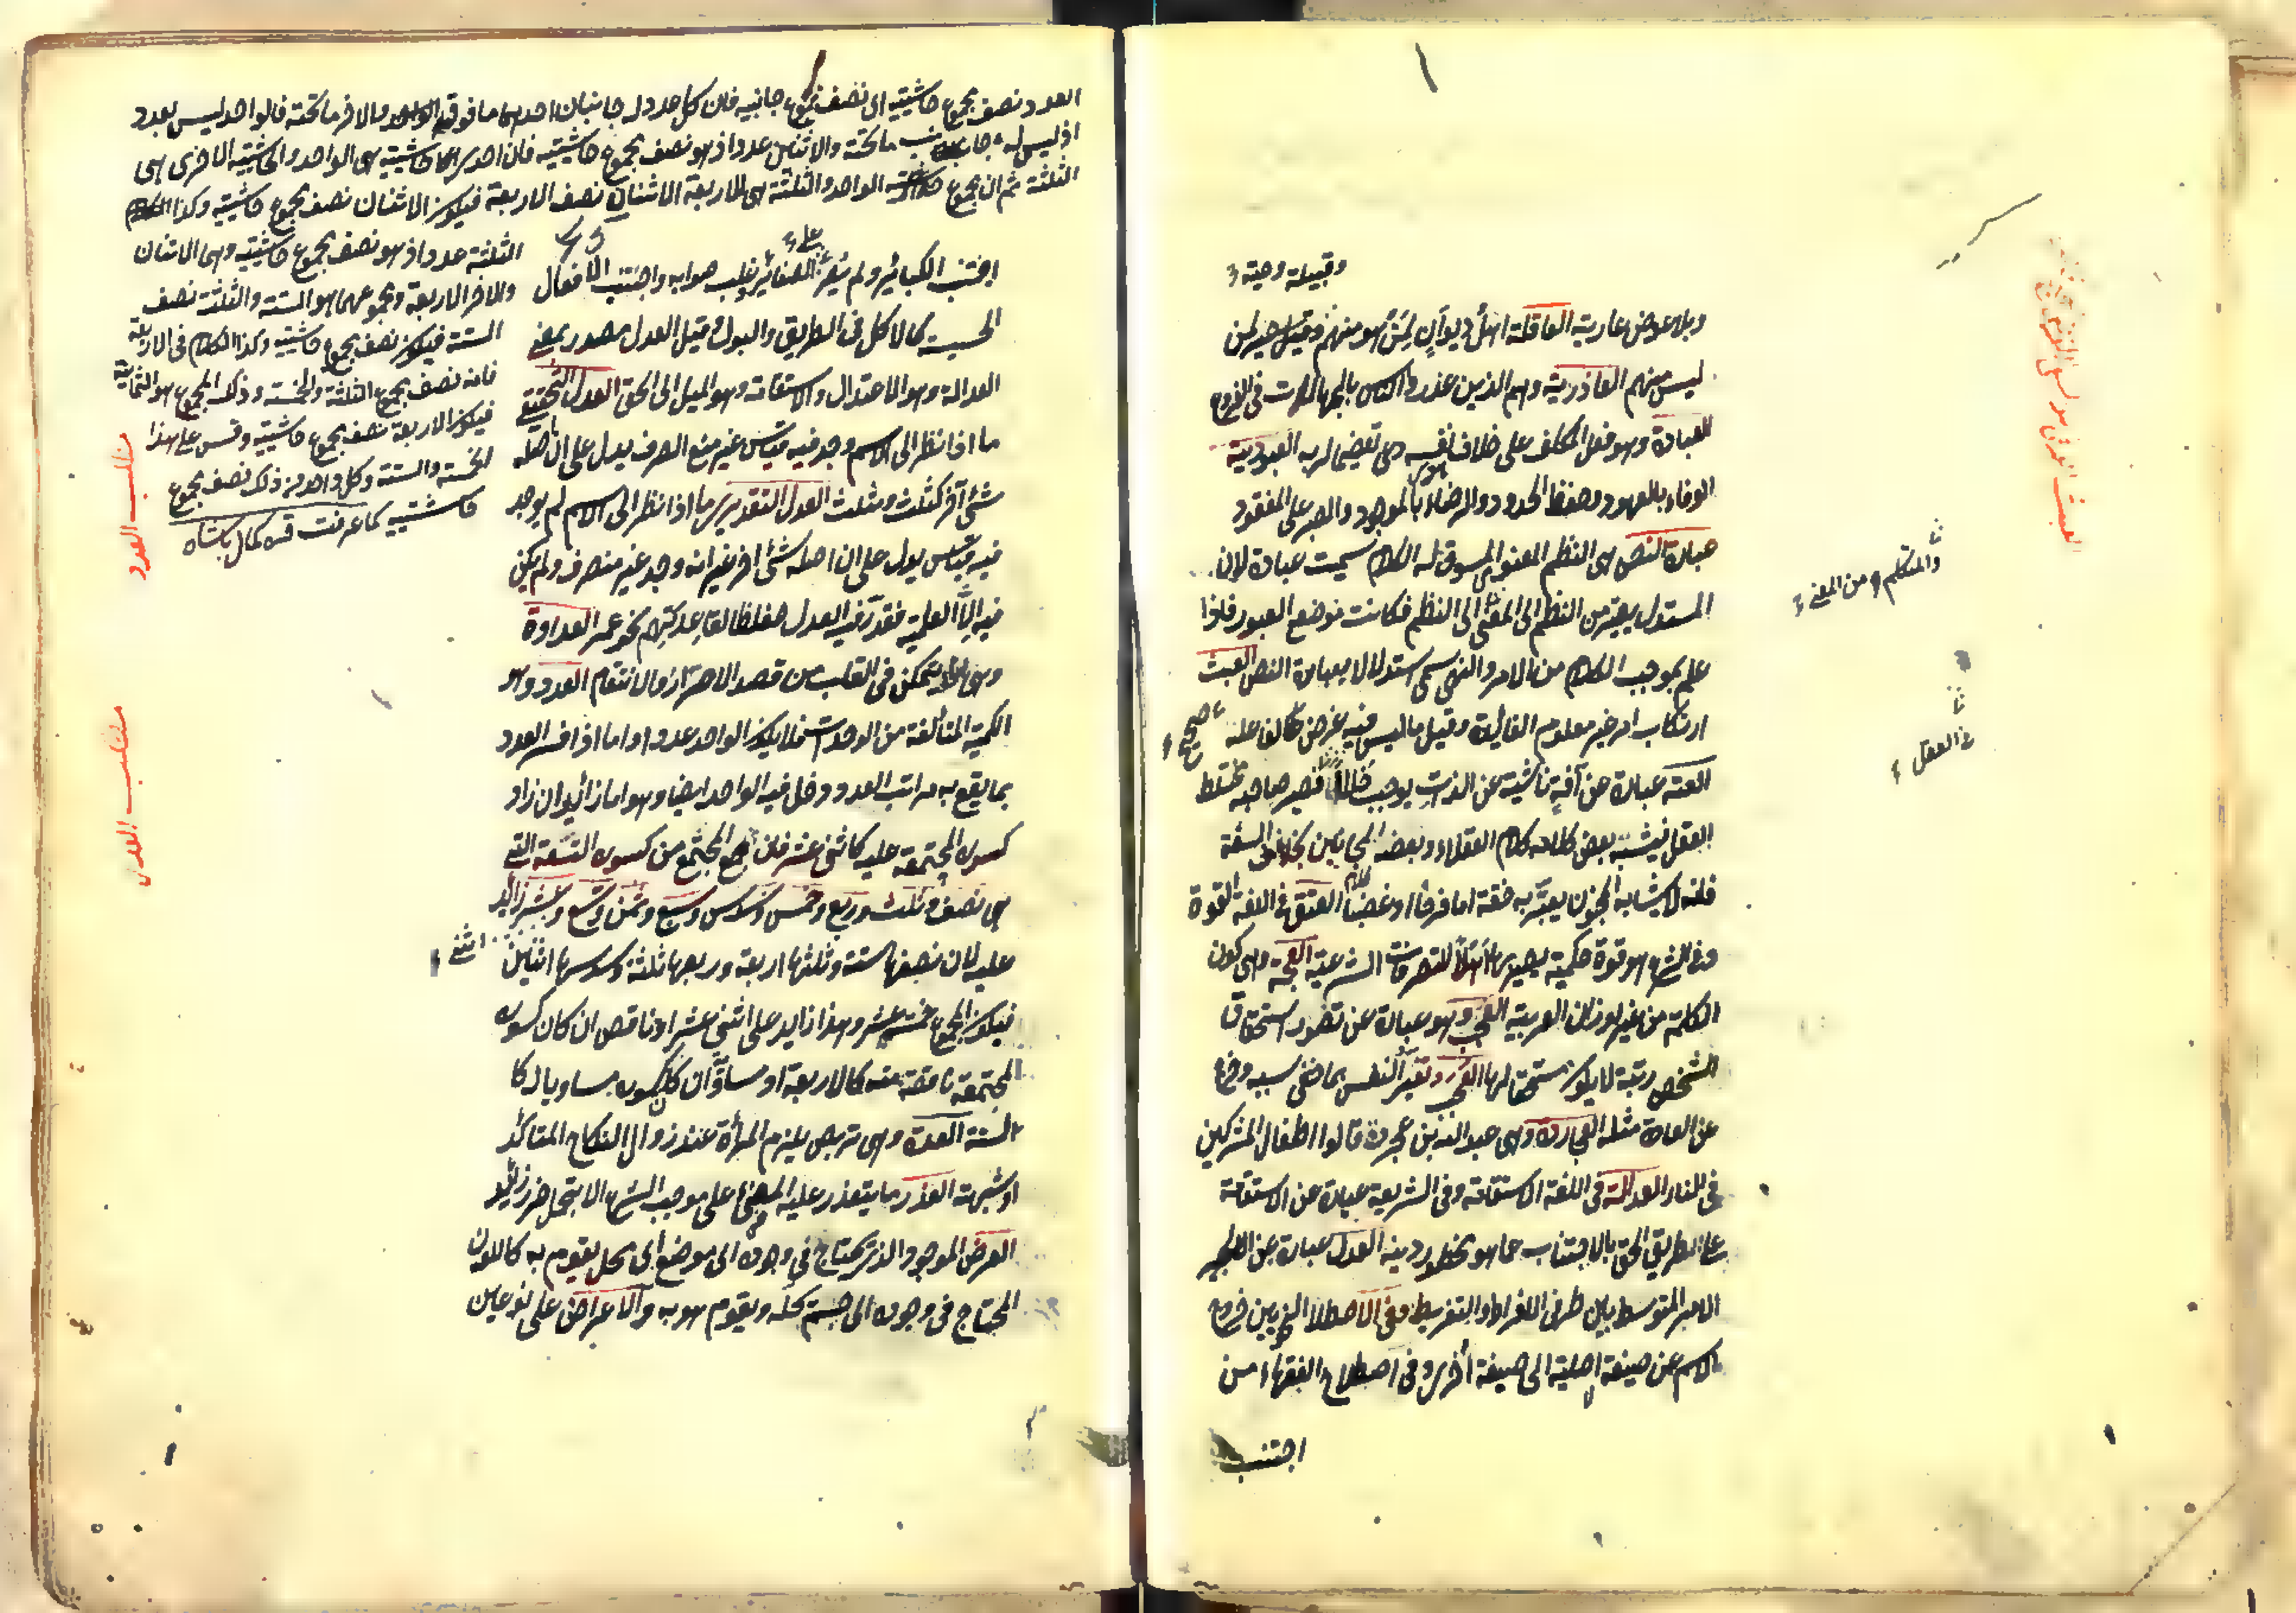 وقبيلته وحيه
وبلا عوض عارية العاقلة اهل ديوان لمن هو منهم وقبيلته لمن
ليس منهم العاذرية وهم الذين عذروا الناس بالجهالات في الفروع
العبادة وهو فعل المكلف على خلاف هوى نفسه تعظيما لربه العبودية
الوفاء بالعهود وحفظ الحدود والرضاء بالموجود والصبر على المفقود
عبارة النص هي النظم المعنوي المسوق له الكلام سميت عبارة لان
المستدل يعبر من النظم الى المعنى الى النظم فكانت موضع العبور فاذا
عمل بموجب الكلام من الامر والنهي سمى استدلالا بعبارة النص العبث
ارتكاب امر غير معلوم الفائدة وقيل ما ليس فيه غرض لفاعله
صحيح
العته عبارة عن آفة ناشية عن الذات يوجب خللا فيصير صاحبه مختلط
العقل فيشبه بعض كلامه كلام العقلاء وبعضه كلام المجانين بخلاف السفه
فانه لا يشابه المجنون يعتريه خفة اما فرحا او غضبا العتق في اللغة القوة
وفي الشرع هو قوة حكمية يصير بها اهلا للتصرفات الشرعية العجمة وهي كون
الكلمة من غير اوزان العربية العجب وهو عبارة عن تصور استحقاق
الشخص رتبة لا يكون مستحقا لها العجب وتغير النفس بما خفي سببه وخرج
عن العادة مثله العجاردة وهي عبد الله بن عجرد قالوا اطفال المشركين
في النار العدالة في اللغة الاستقامة وفي الشريعة عبارة عن الاستقامة
على الطريق الحق بالاجتناب عما هو محظور دينه العدل عبارة عن
الامر المتوسط بين طرفي الافراط والتفريط وفي الاصطلاح النحويين خروج
الاسم عن صيغة اصلية الى صيغة اخرى وفي اصطلاح الفقهاء من
اجتنب
والمتكلم من المعنى
في العقل
العدد نصف مجموع حاشيتيه اي نصف مجموع جانبيه فان كل عدد له جانبان احدهما ما فوقه والاخر ما تحته فالواحد ليس بعدد
اذ ليس له جانب ما تحته والاثنان عدد اذ هو نصف مجموع حاشيتيه فان احدى حاشيتيه هي الواحد والحاشية الاخرى هي
الثلثة ثم ان مجموع الواحد والثلثة هي الاربعة الاثنان نصف الاربعة فيكون الاثنان نصف مجموع حاشيتيه وكذا
الثلثة عدد اذ هو نصف مجموع حاشيتيه وهي الاثنان
والاخر الاربعة ومجموعهما هو الستة والثلثة نصف
الستة فيكون نصف مجموع حاشيتيه وكذا الكلام في الاربعة
فانه نصف مجموع الثلثة والخمسة وذلك المجموع هو الثمانية
فيكون الاربعة نصف مجموع حاشيتيه وقس على هذا
الخمسة والستة وكل واحد من ذلك نصف مجموع
حاشيتيه كما عرفت قره كمال پاشا
مطلب العدد
مطلب
اجتنب الكبائر ولم يصر على الصغائر وغلب صوابه واجتنب الافعال
الخسيسة كالاكل في الطريق والبول وقيل العدل مصدر بمعنى
العدالة وهو الاعتدال والاستقامة وهو الميل الى الحق العدل التحقيقي
ما اذا نظر الى الاسم وجد فيه قياس غير منع الصرف يدل على ان اصله
شئ آخر كثلث ومثلث العدل التقديري ما اذا نظر الى الاسم لم يوجد
فيه قياس يدل على ان اصله شئ اخر غير انه وجد غير منصرف ولم يكن
فيه الا العلمية فقدر فيه العدل حفظا لقاعدتهم نحو عمر العداوة
وهي ما يتمكن في القلب من قصد الاضرار والانتقام العدد وهو
الكمية المتألفة من الوحدات فلا يكون الواحد عددا واما اذا فسر العدد
بما يقع به مراتب العدد دخل فيه الواحد ايضا وهو اما زائد ان زاد
كسوره المجتمعة عليه كاثني عشر فان المجتمع من كسوره التسعة التي
هي نصف وثلث وربع وخمس وسدس وسبع وثمن وتسع وعشر زائد
عليه لان نصفها ستة وثلثها اربعة وربعها ثلثة وسدسها اثنين
فيكون المجموع خمسة عشر وهذا زايد على اثني عشر او ناقص ان كان كسوره
المجتمعة ناقصة منه كالاربعة او مساو ان كان كسوره مساويا له كا
لستة العدة وهي تربص يلزم المرأة عند زوال النكاح المتأكد
او شبهته العذر ما يتعذر عليه المعنى على موجب الشرع الا بتحمل ضرر زائد
العرض الموجود الذي يحتاج في وجوده الى موضع اي محل يقوم به كاللون
المحتاج في وجوده الى جسم يحله ويقوم هو به والاعراض على نوعين